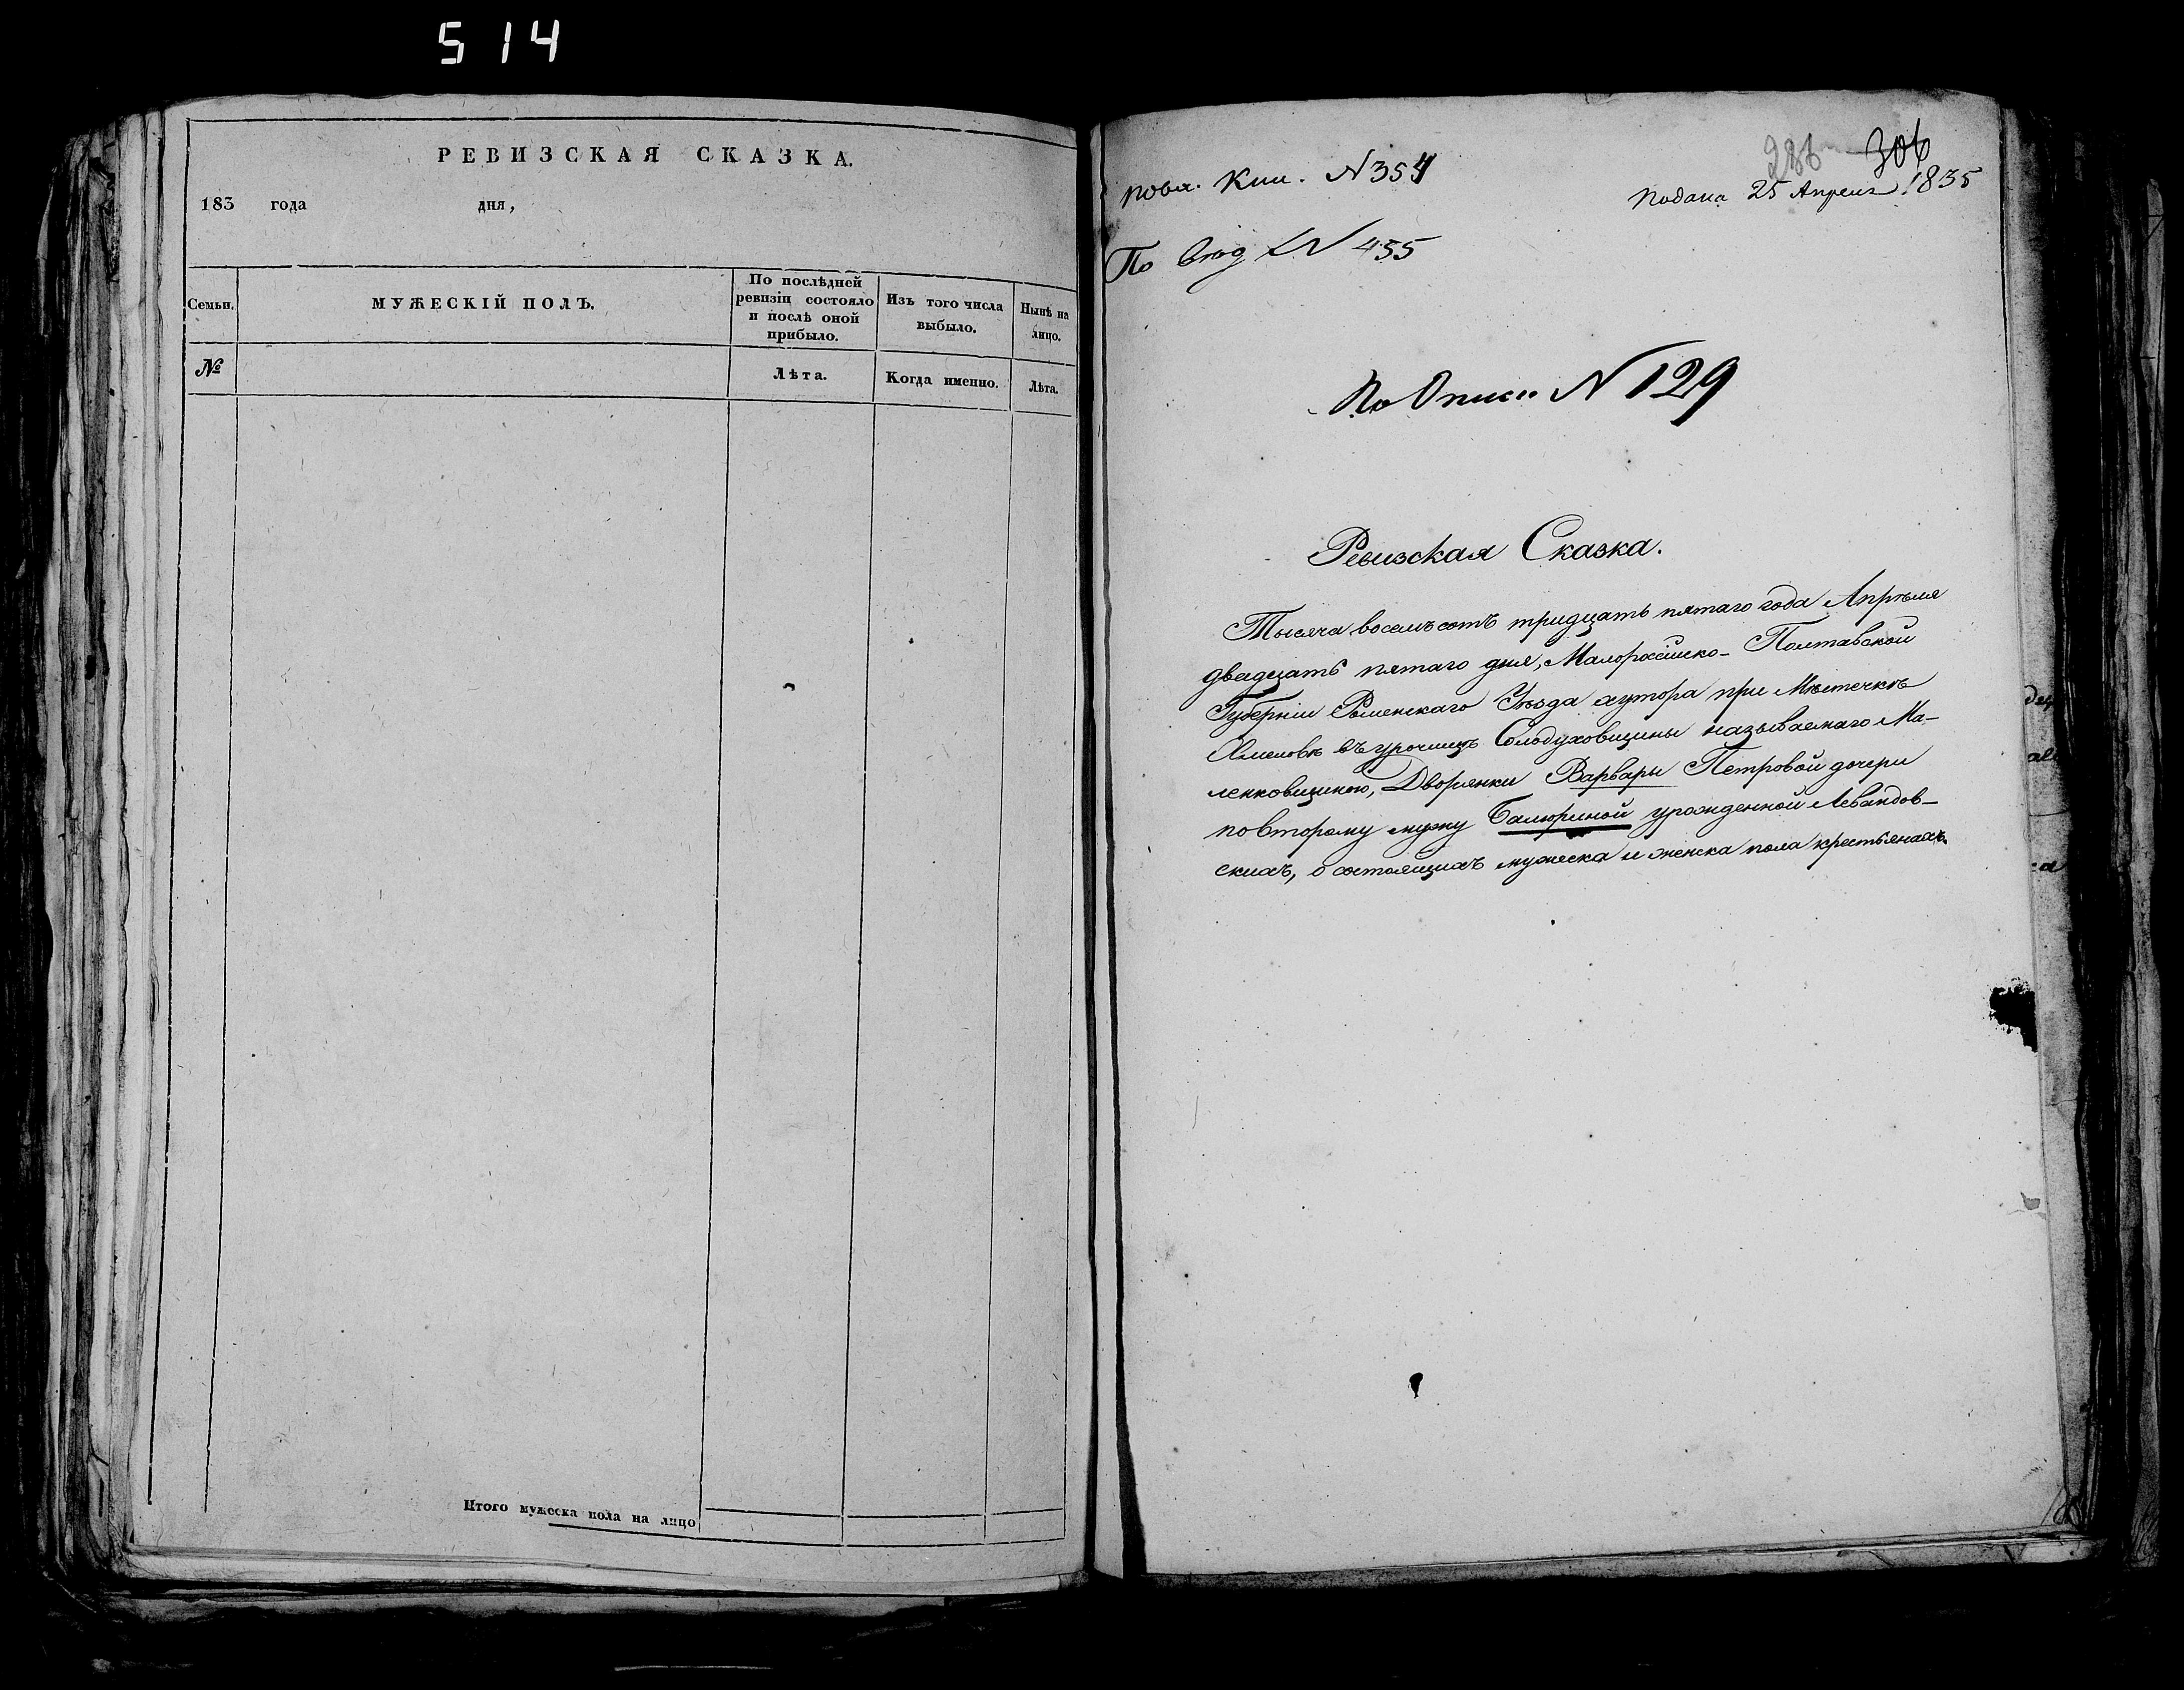 514
РЕВИЗСКАЯ СКАЗКА.
183 года дня,
Семьи.
МУЖЕСКІЙ ПОЛЪ.
По послѣдней
ревизіи состояло
и послѣ оной
прибыло.
Изъ того числа
выбыло.
Нынѣ на
лицо.
№
Лѣта.
Когда именно.
Лѣта.
Итого мужеска пола на лицо
286 306
Подана 25 Апреля 1835
Кни. N 354
По вход N 455
По Описи N 129
Ревизская Сказка.
Тысяча восемъ сотъ тридцать пятаго года Апрѣля
двадцать пятаго дня, Малороссійско- Полтавской
Губерніи Роменскаго Уѣзда хутора при Мѣстечкѣ
Хмеловѣ въ урочищѣ Солодуховщины называемаго Ма-
ленковщиною, Дворянки Варвары Петровой дочери
по второму мужу Балюриной урожденной Левандов-
скихъ, о состоящихъ мужеска и женска пола крестьянахъ